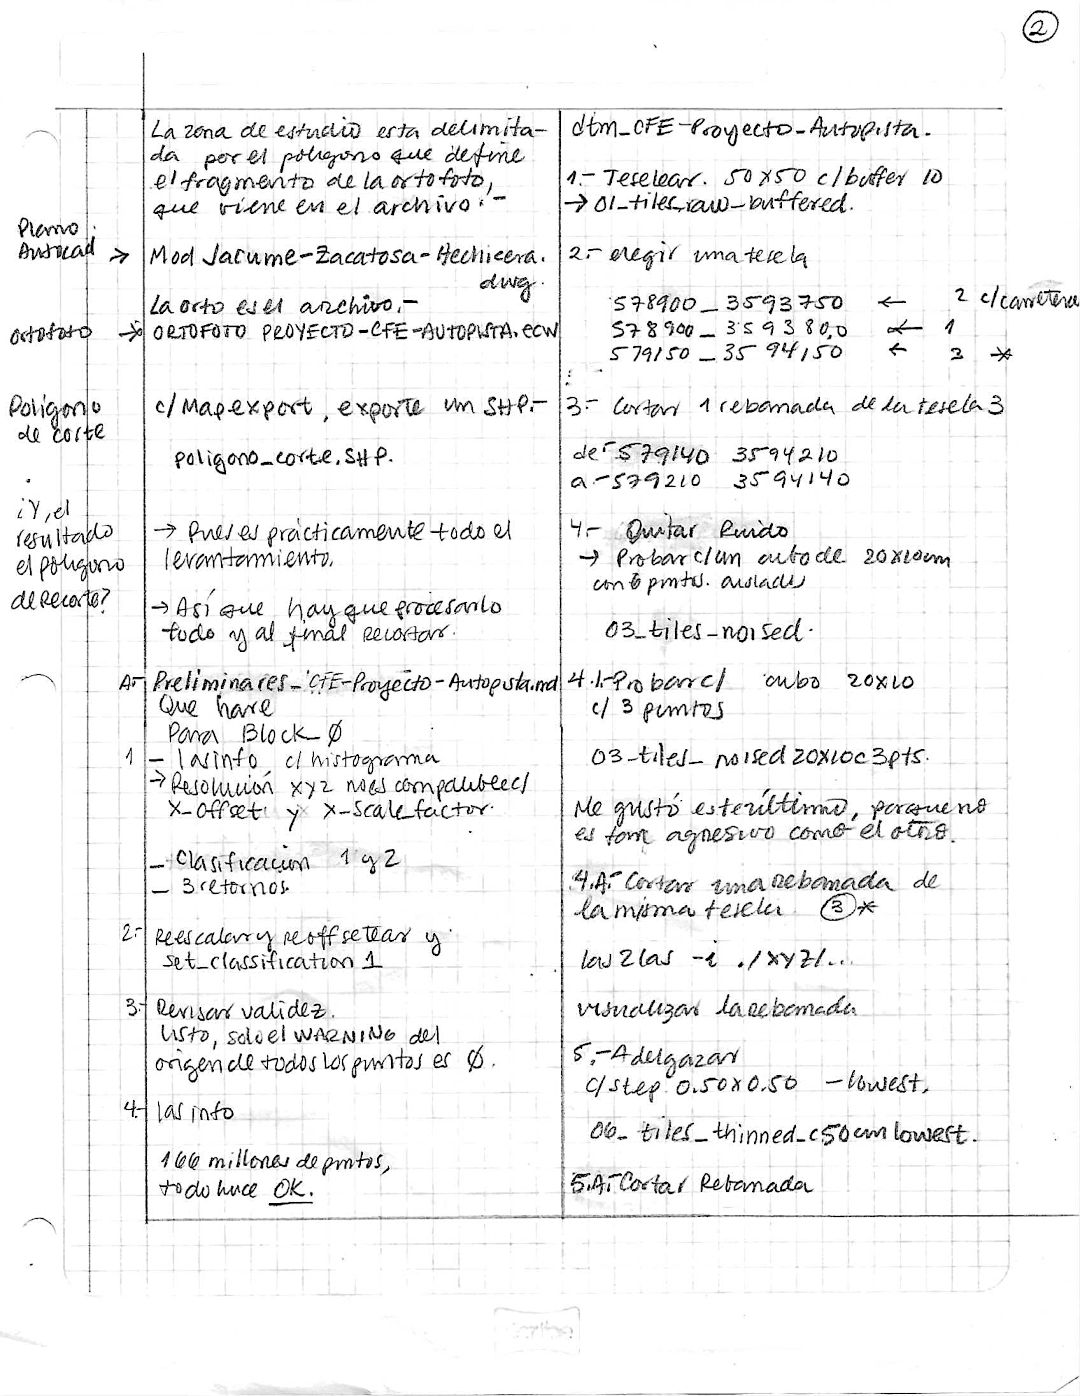 2
La zona de estudio esta delimita-
da por el poligono que define
el fragmento de la ortofoto,
que viene en el archivo:-
Plano
Autocad → Mod Jacume-Zacatosa-Hechicera.
dwg.
La orto es el archivo.-
Ortofoto → ORTOFOTO PROYECTO-CFE-AUTOPISTA.ECW
Polígono
de corte
c/ Mapexport, exporte un SHP.-
poligono_corte.SHP.
¿Y, el
resultado
el poligono
de Recorte?
→ Pues es prácticamente todo el
levantamiento.
→ Así que hay que procesarlo
todo y al final recortar.
A.- Preliminares_CFE-Proyecto-Autopista.md
Que hare
Para Block_0
1 - lasinfo c/ histograma
→ Resolución xyz no es compatible c/
x-offset y x-scale factor.
- Clasificación 1 y 2
- 3 retornos
2.- Reescalar y reoffsetear y
set_classification 1
3.- Revisar validez.
Listo, solo el WARNING del
origen de todos los puntos es 0.
4.- las info
166 millones de puntos,
todo luce OK.
dtm_CFE-Proyecto-Autopista.
1.- Teselear. 50x50 c/buffer 10
→ 01_tiles_raw_buffered.
2.- elegir una tesela
578900_3593750 ← 2 c/carretera
578900_3593800 ← 1
579150_3594150 ← 3 *
3.- Cortar 1 rebanada de la tesela 3
de.- 579140 3594210
a.- 579210 3594140
4.- Quitar Ruido
→ Probar c/un cubo de 20x10cm
con 6 pntos. aislados
03_tiles_noised.
4.1.- Probar c/ cubo 20x10
c/ 3 puntos
03_tiles_noised20x10c3pts.
Me gustó este último, porque no
es tan agresivo como el otro.
4.A.- Cortar una rebanada de
la misma tesela 3 *
las2las -i ./xyz/...
visualizar la rebanada
5.- Adelgazar
c/step 0.50x0.50 - lowest.
06_tiles_thinned_c50cm lowest.
5.A.- Cortar Rebanada